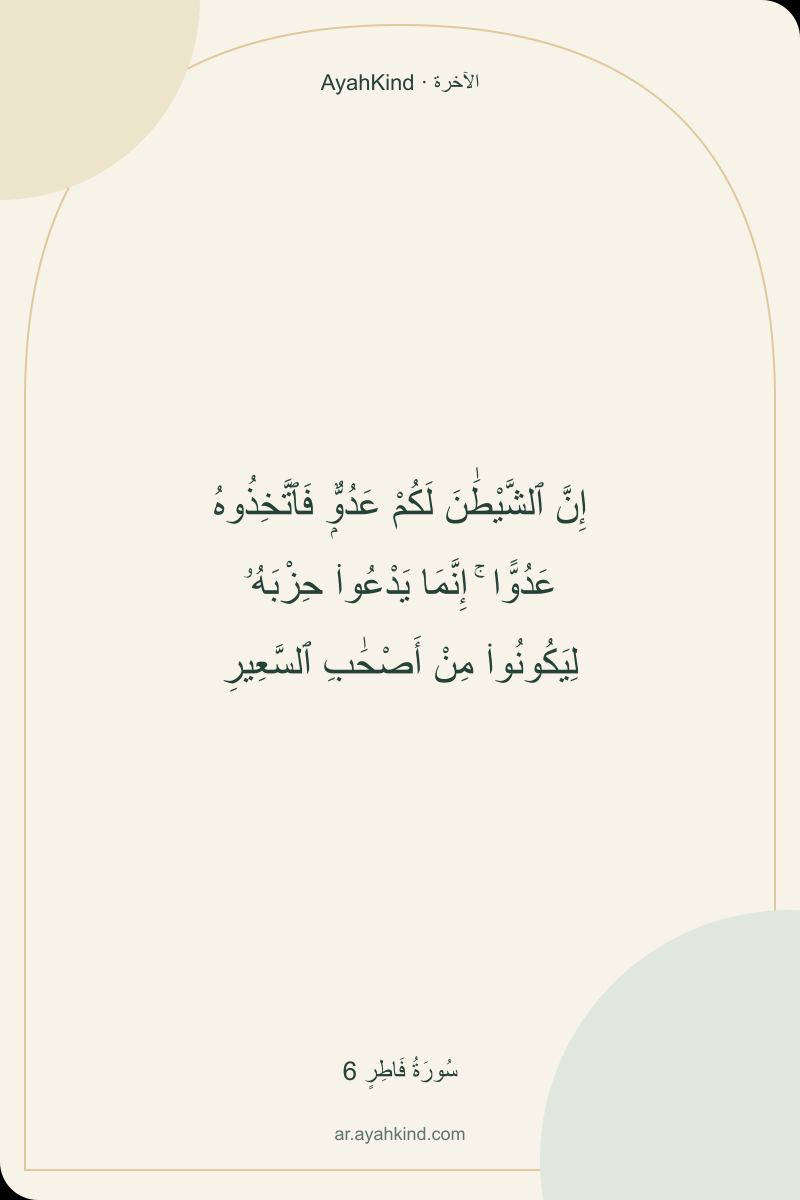 AyahKind · الآخرة
إِنَّ ٱلشَّيْطَٰنَ لَكُمْ عَدُوٌّۭ فَٱتَّخِذُوهُ
عَدُوًّا ۚ إِنَّمَا يَدْعُوا۟ حِزْبَهُۥ
لِيَكُونُوا۟ مِنْ أَصْحَٰبِ ٱلسَّعِيرِ
سُورَةُ فَاطِرٍ 6
ar.ayahkind.com